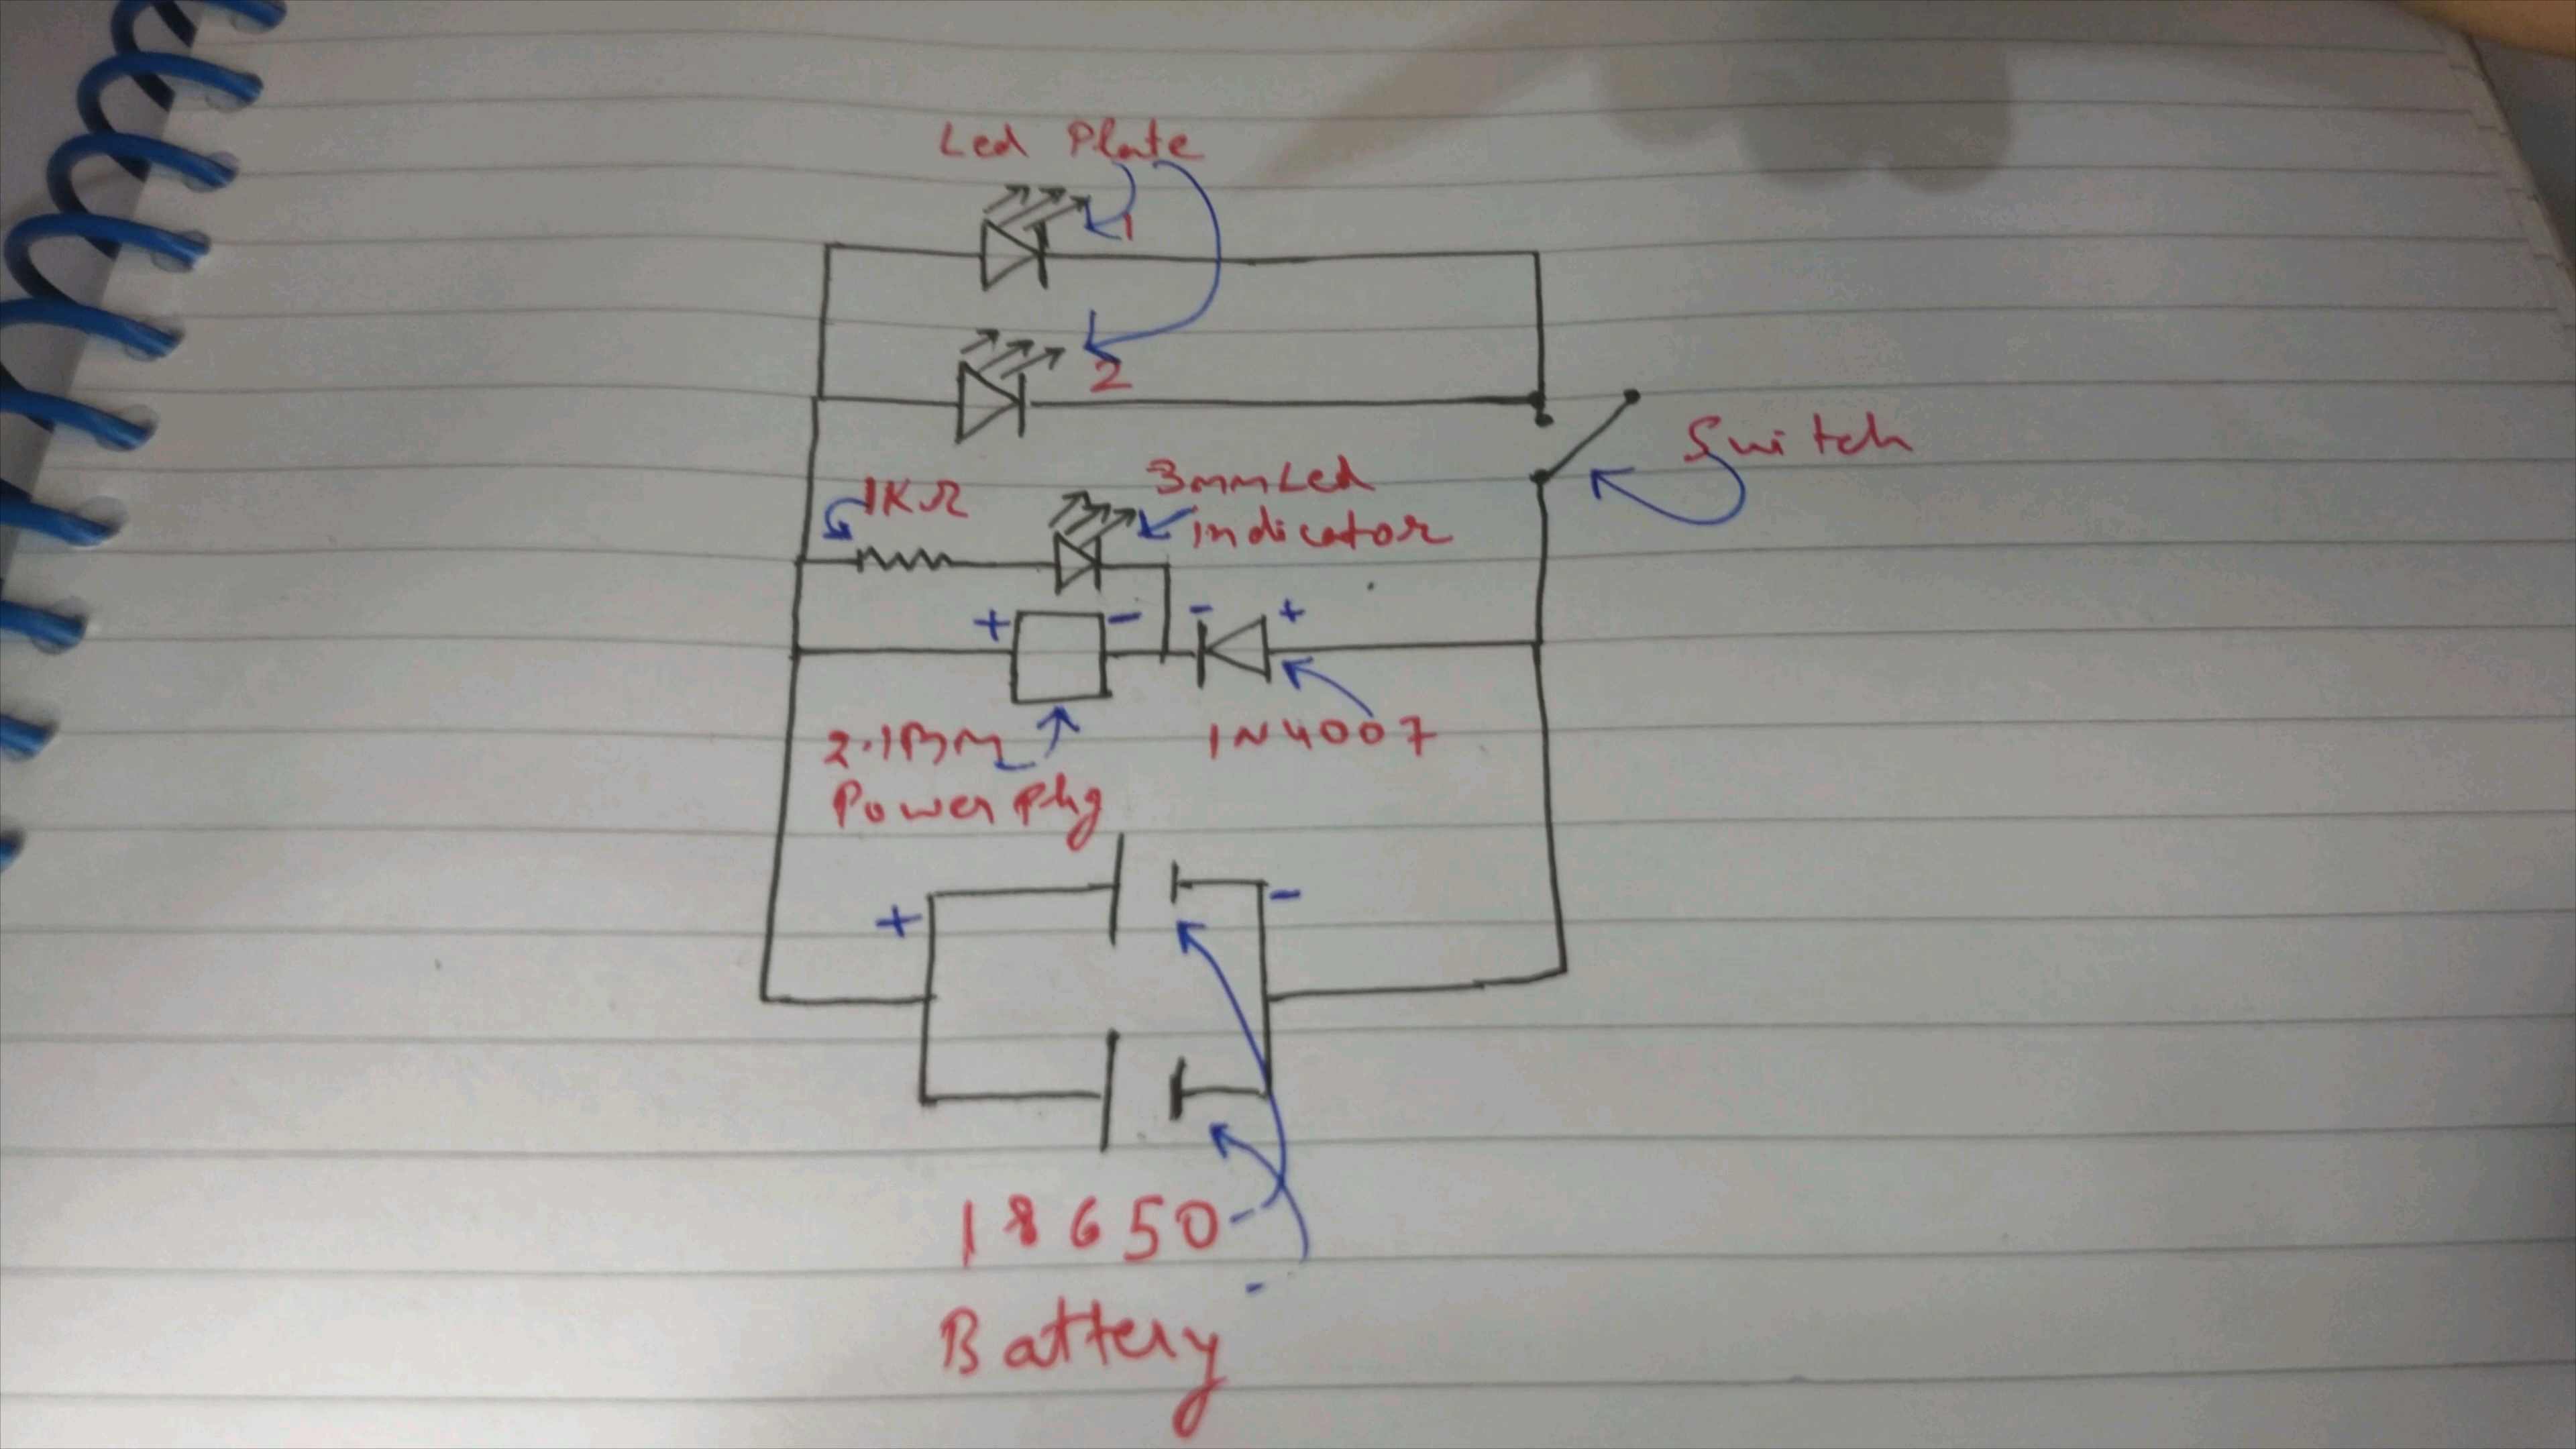 Led Plate
1
2
Switch
1KΩ
3mm Led
indicator
+ - - +
1N4007
Power Plug
+ -
18650
Battery